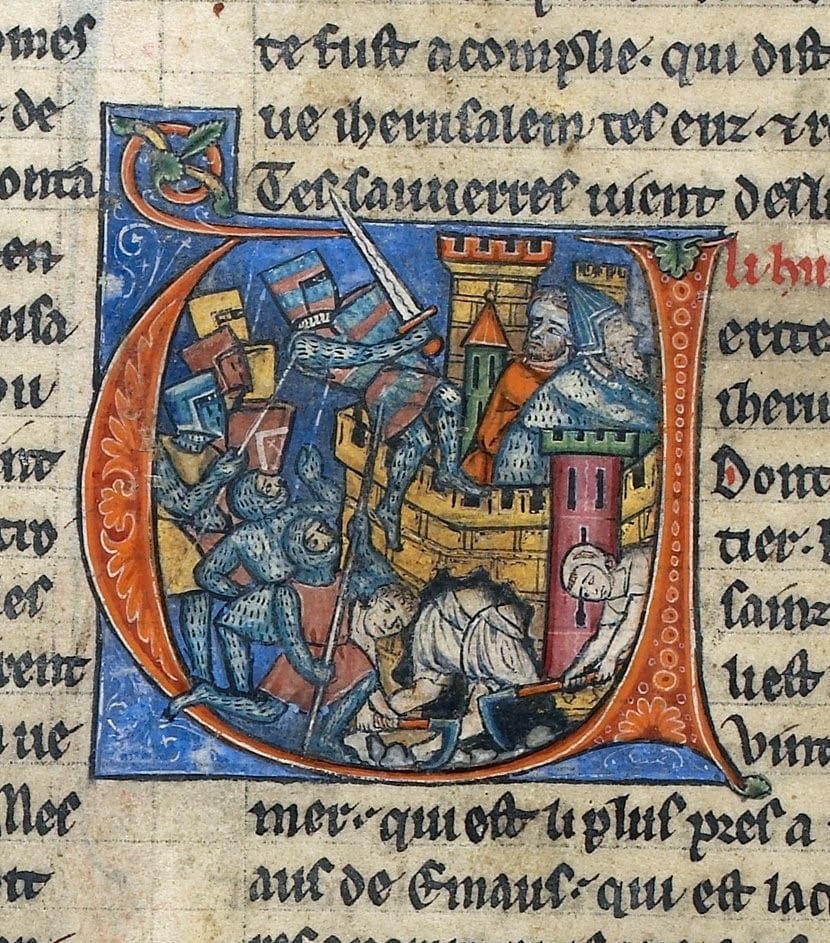 omes
de
onta
en
uisa
ou
nt
tro
es
rent
ue
Mes
oit
te fust acomplie. qui dist
ue iherusalem tes euz. ⁊ r
Tes sauuerres uient desl
li hu
iheru
Dont
tier.
sainz
li est
vint
mer. qui est li plus pres a
aus de Emaus. qui est iac